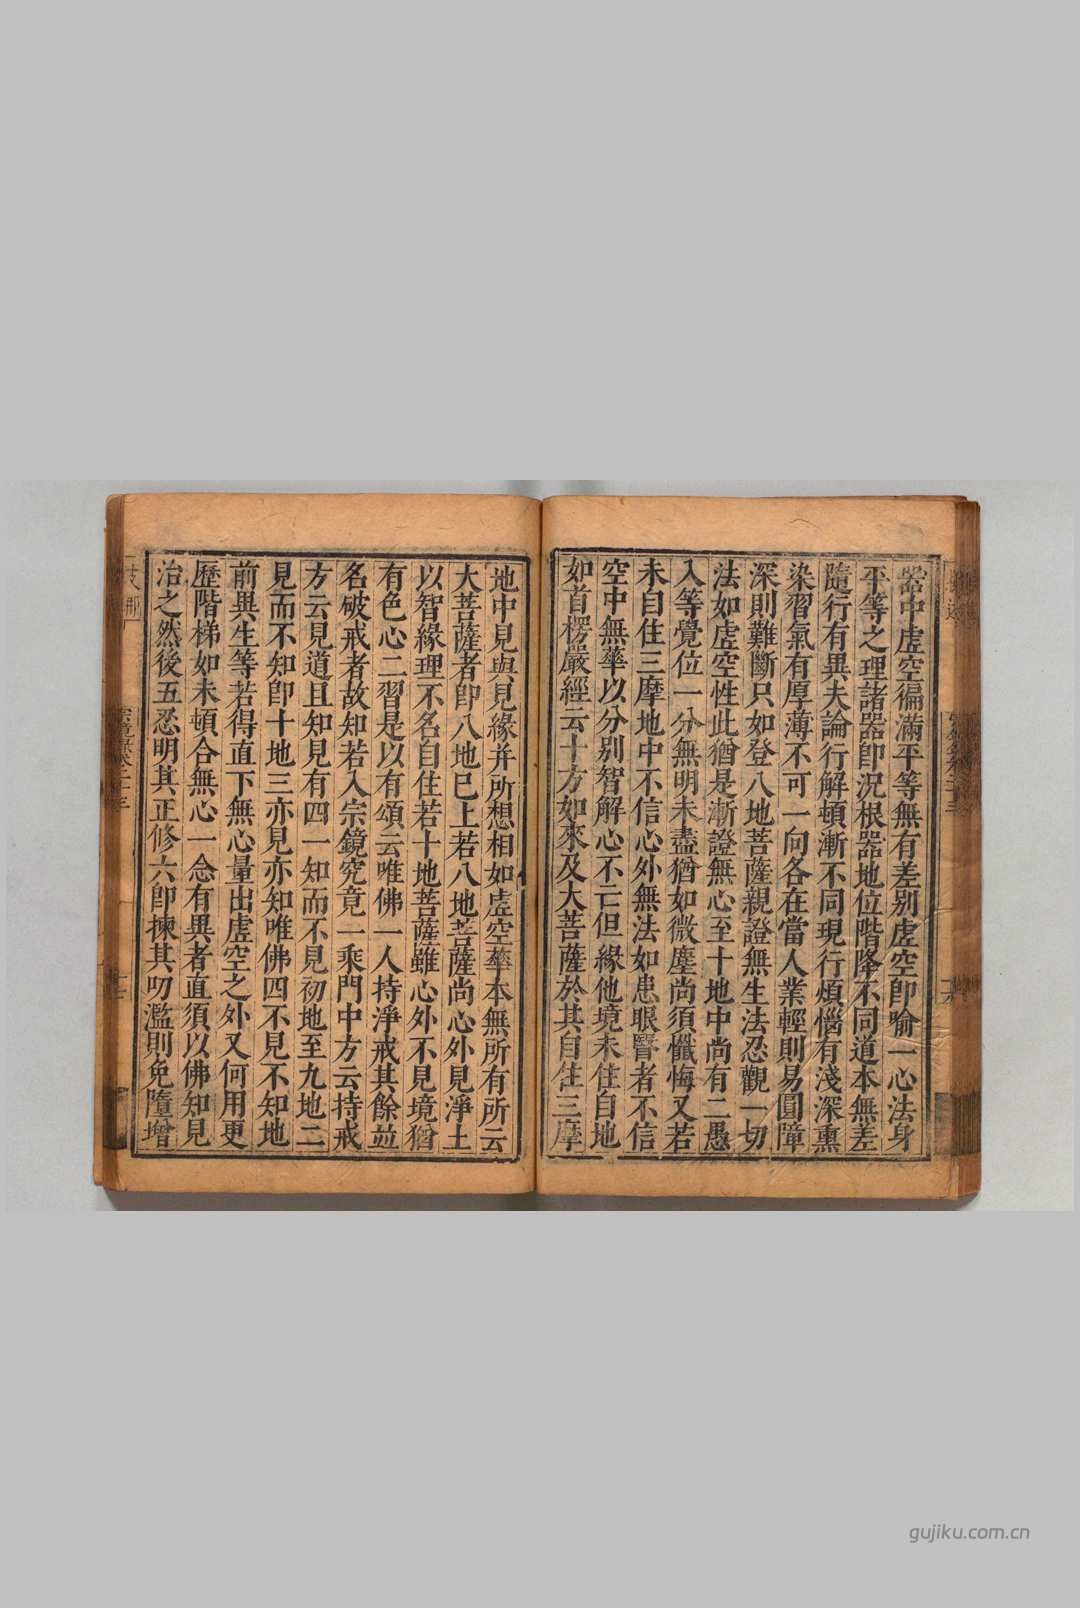 器中虛空徧滿平等無有差别虛空卽喻一心法身
平等之理諸器卽況根器地位階降不同道本無差
隨行有異夫論行解頓漸不同現行煩惱有淺深熏
染習氣有厚薄不可一向各在當人業輕則易圓障
深則難斷只如登八地菩薩親證無生法忍觀一切
法如虛空性此猶是漸證無心至十地中尚有二愚
入等覺位一分無明未盡猶如微塵尚須懺悔又若
未自住三摩地中不信心外無法如患眼瞖者不信
空中無華以分别智解心不亡但緣他境未住自地
如首楞嚴經云十方如來及大菩薩於其自住三摩
地中見與見緣并所想相如虛空華本無所有所云
大菩薩者卽八地已上若八地菩薩尚心外見淨土
以智緣理不名自住若十地菩薩雖心外不見境猶
有色心二習是以有頌云唯佛一人持淨戒其餘並
名破戒者故知若入宗鏡究竟一乘門中方云持戒
方云見道且知見有四一知而不見初地至九地二
見而不知卽十地三亦見亦知唯佛四不見不知地
前異生等若得直下無心量出虛空之外又何用更
歷階梯如未頓合無心一念有異者直須以佛知見
治之然後五忍明其正修六卽揀其叨濫則免墮增
宗鏡錄卷二十三
gujiku.com.cn